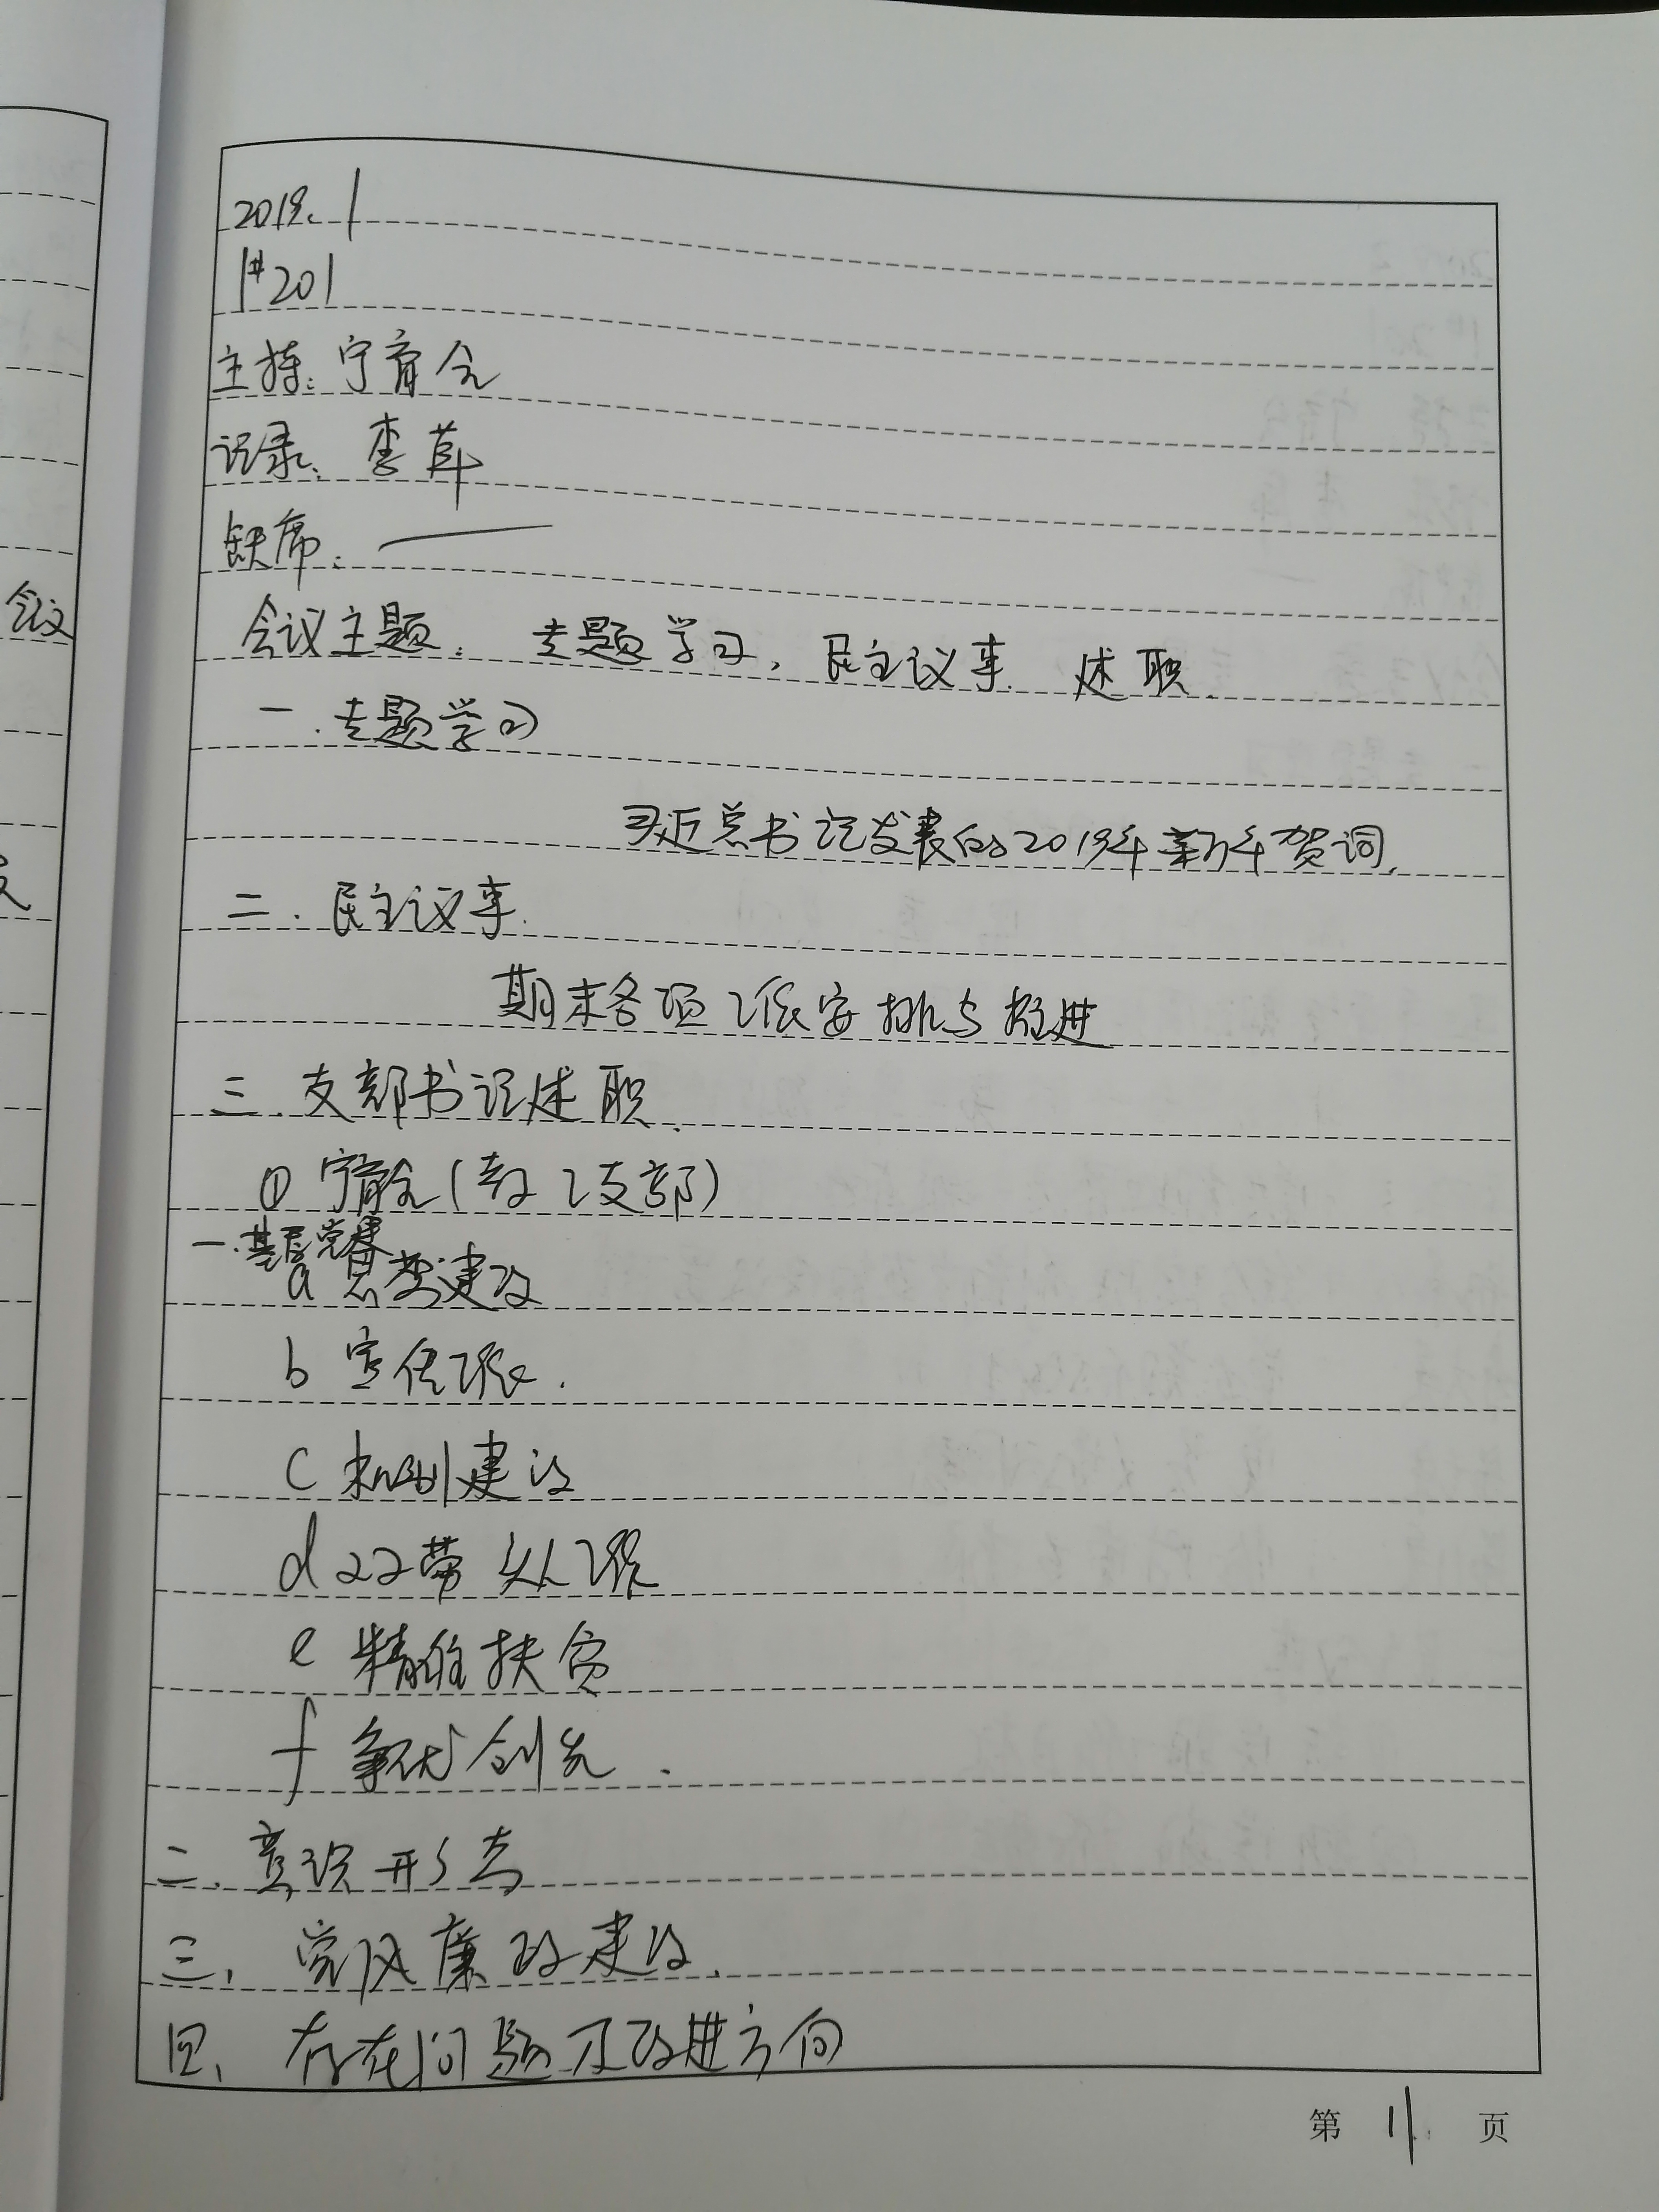 2019.1
1#201
主持：宁育全
记录：李莎
缺席：——
会议主题：专题学习，民主议事 述职.
一.专题学习
习近总书记发表的2019年新年贺词.
二.民主议事.
期末各项工作安排与推进
三.支部书记述职.
① 宁育全(教工支部)
一.基层党建
a 思想建设
b 宣传工作.
c 机制建设
d 22带头人工作
e 精准扶贫
f 争优创先.
二.意识形态
三.党风廉政建设.
四、存在问题及改进方向
第 11 页
会议